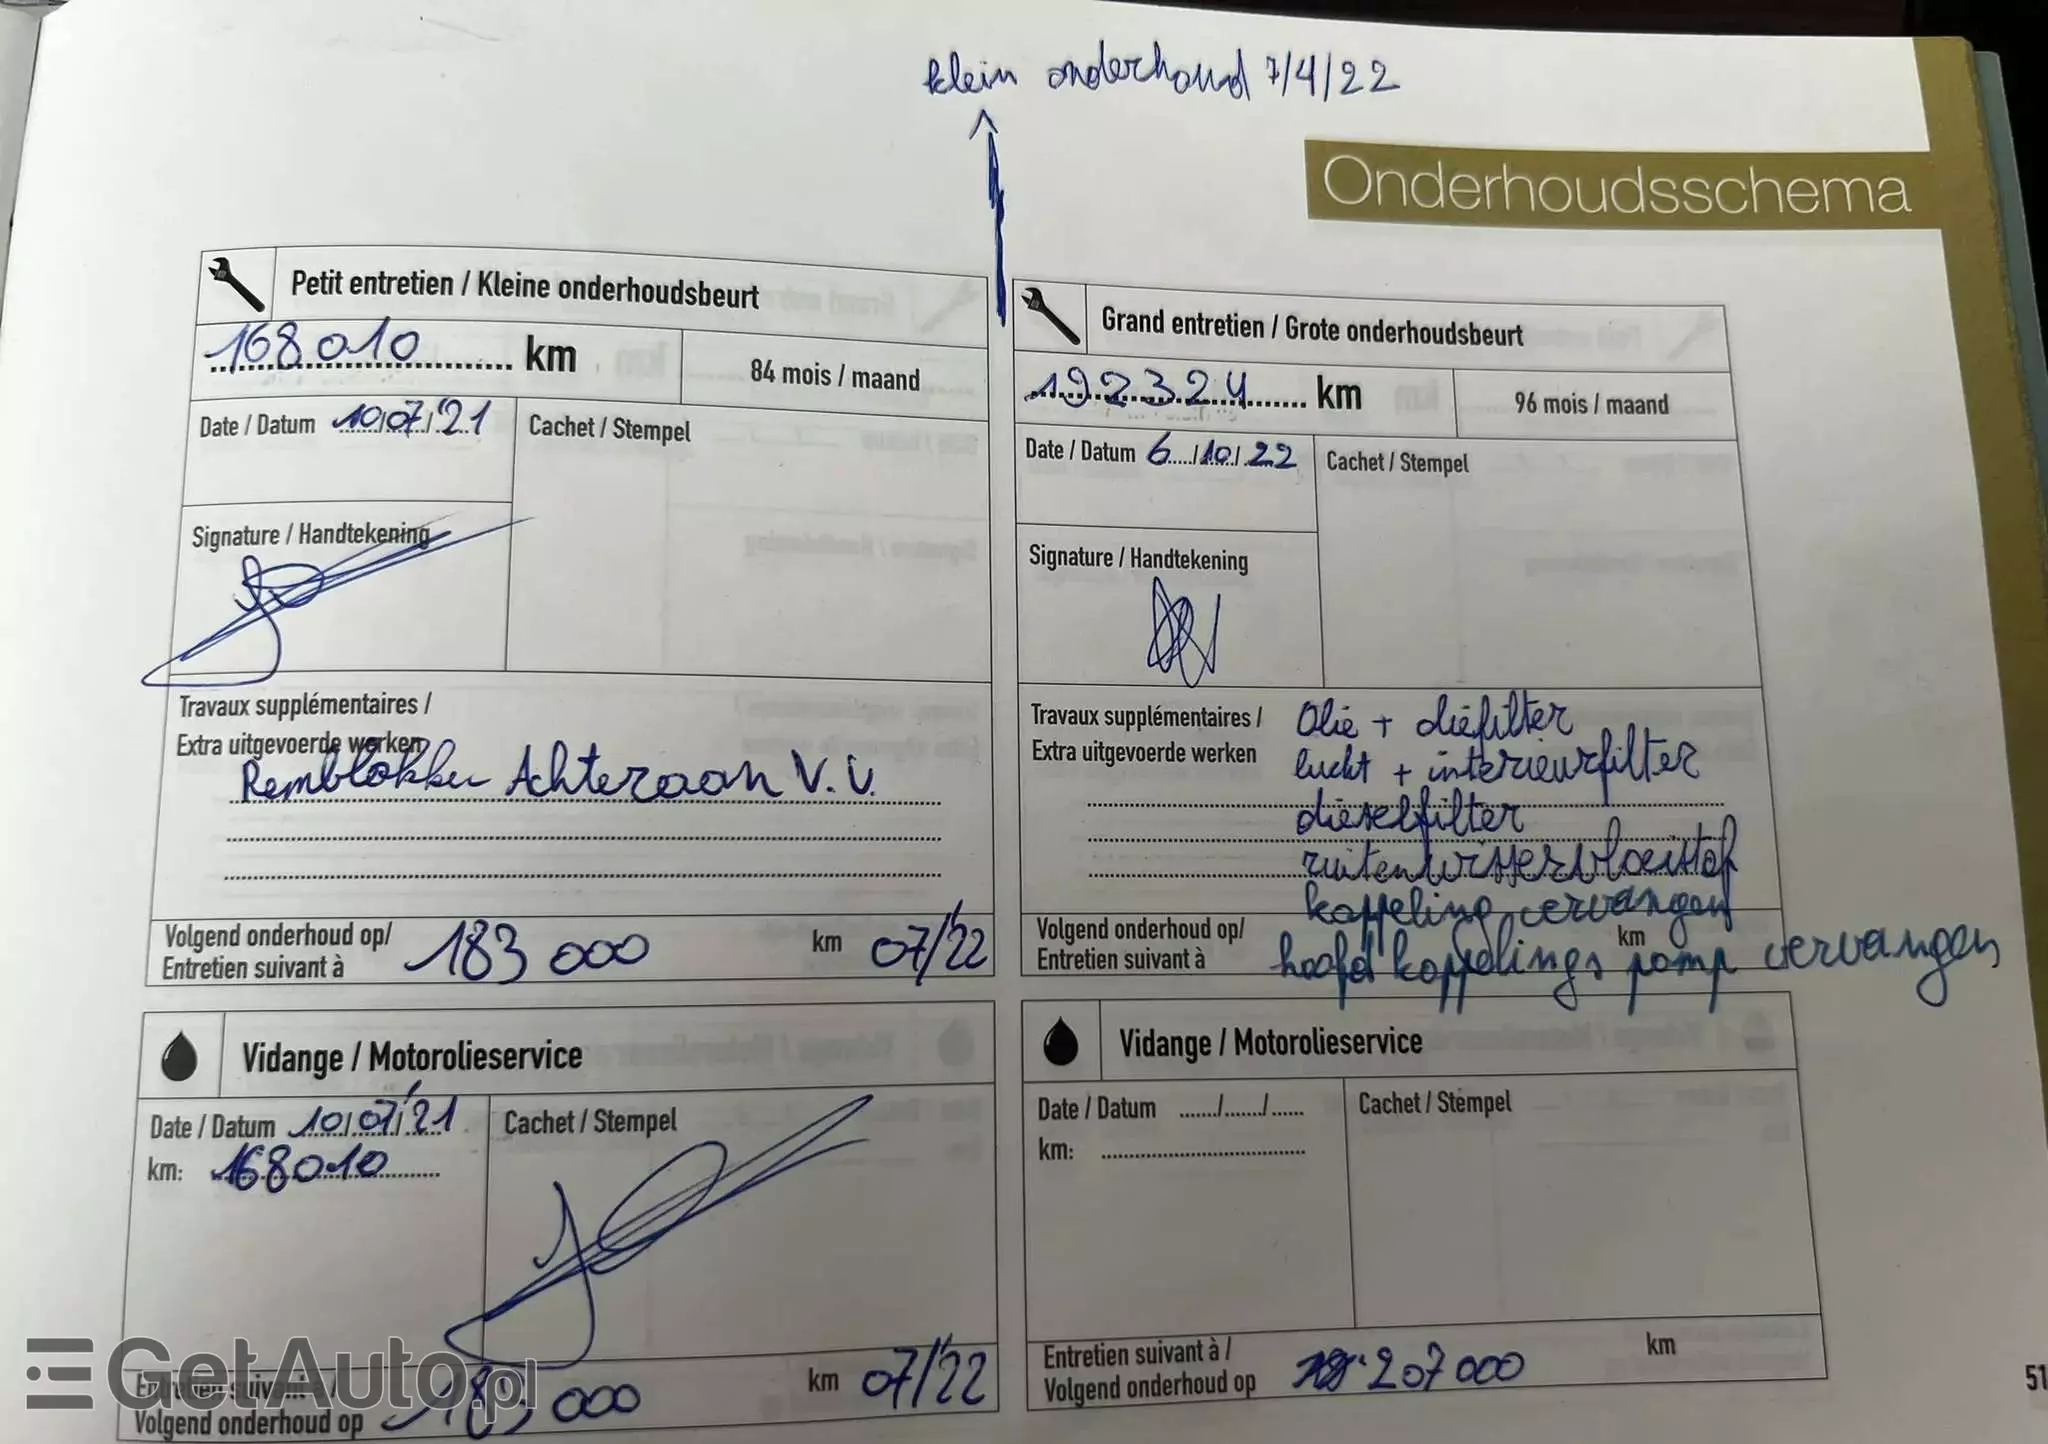 klein onderhoud 7/4/22
Onderhoudsschema
Petit entretien / Kleine onderhoudsbeurt
168010 km
84 mois / maand
Date / Datum 10/07/'21
Cachet / Stempel
Signature / Handtekening
Travaux supplémentaires /
Extra uitgevoerde werken
Remblokken Achteraan V.V.
Volgend onderhoud op/
Entretien suivant à
183 000 km 07/'22
Grand entretien / Grote onderhoudsbeurt
192324 km
96 mois / maand
Date / Datum 6/10/22
Cachet / Stempel
Signature / Handtekening
Travaux supplémentaires /
Extra uitgevoerde werken
Olie + oliefilter
lucht + interieurfilter
dieselfilter
ruitenwisservloeistof
koppeling vervangen
Volgend onderhoud op/
Entretien suivant à
km
hoofdkoppelings pomp vervangen
Vidange / Motorolieservice
Date / Datum 10/07/'21
km: 168010
Cachet / Stempel
Entretien suivant à /
Volgend onderhoud op
183 000 km 07/'22
Vidange / Motorolieservice
Date / Datum ....../....../......
km:
Cachet / Stempel
Entretien suivant à /
Volgend onderhoud op
207000 km
51
GetAuto.pl